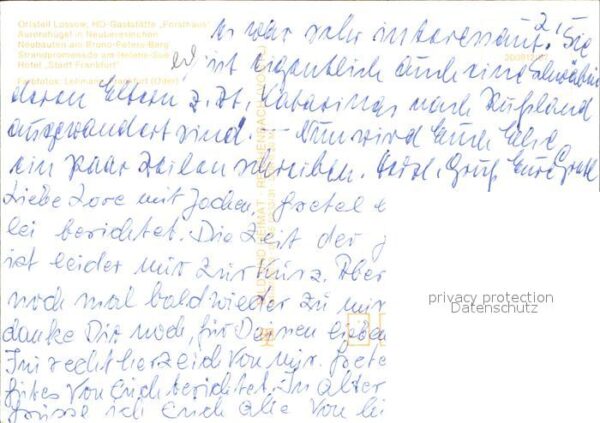 Ortsteil Lossow, HO-Gaststätte „Forsthaus“
Aurorahügel in Neuberesinchen
Neubauten am Bruno-Peters-Berg
Strandpromenade am Helene-See
Hotel „Stadt Frankfurt“
Farbfotos: Lehmann, Frankfurt (Oder)
2)
es war sehr interessant. Sie
ist eigentlich auch eine
deren Eltern z. Zt. Katarinas nach Rußland
ausgewandert sind. – Nun wird Euch
ein paar Zeilen schreiben. Herzl. Gruß Eure Gretl
Liebe Lore mit Jochen, Gretel
lei berichtet. Die Zeit der
ist leider mir zur Kurz. Aber
noch mal bald wieder zu mir
danke Dir noch, für Deinen lieben
recht herzlich von mir. Grete
gutes von Euch berichtet. In alter
Grüsse ich Euch alle von
BILD UND HEIMAT · REICHENBACH (VOGTL)
privacy protection
Datenschutz